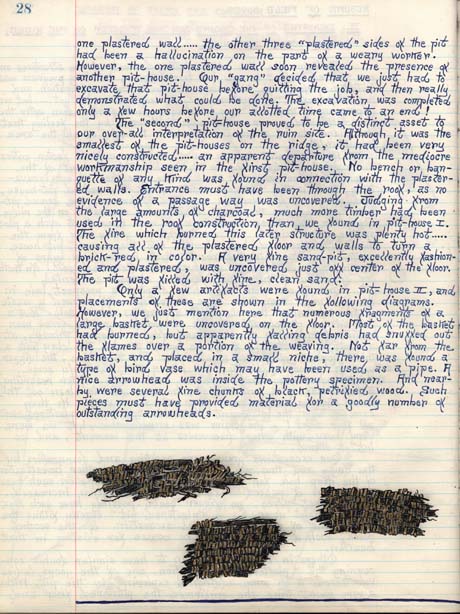 28
one plastered wall..... the other three "plastered" sides of the pit
had been a hallucination on the part of a weary worker.
However, the one plastered wall soon revealed the presence of
another pit-house. Our "gang" decided that we just had to
excavate that pit-house before quitting the job, and then really
demonstrated what could be done. The excavation was completed
only a few hours before our allotted time came to an end!
The "second" pit-house proved to be a distinct asset to
our over-all interpretation of the ruin site. Although, it was the
smallest of the pit-houses on the ridge, it had been very
nicely constructed..... an apparent departure from the mediocre
workmanship seen in the first pit-house. No bench or ban-
quette of any kind was found in connection with the plaster
ed walls. Entrance must have been through the roof, as no
evidence of a passage way was uncovered. Judging from
the large amounts of charcoal, much more timber had been
used in the roof construction, than we found in pit-house I.
The fire which burned this later structure was plenty hot.....
causing all of the plastered floor and walls to turn a
brick-red in color. A very fine sand-pit, excellently fashion-
ed and plastered, was uncovered just off center of the floor.
The pit was filled with fine, clean sand.
Only a few artifacts were found in pit-house II, and
placements of these are shown in the following diagrams.
However, we just mention here that numerous fragments of a
large basket were uncovered on the floor. Most of the basket
had burned, but apparently falling debris had snuffed out
the flames over a portion of the weaving. Not far from the
basket, and placed in a small niche, there was found a
type of bird vase which may have been used as a pipe. A
nice arrowhead was inside the pottery specimen. And near-
by, were several fine chunks of black, petrified wood. Such
pieces must have provided material for a goodly number of
outstanding arrowheads.